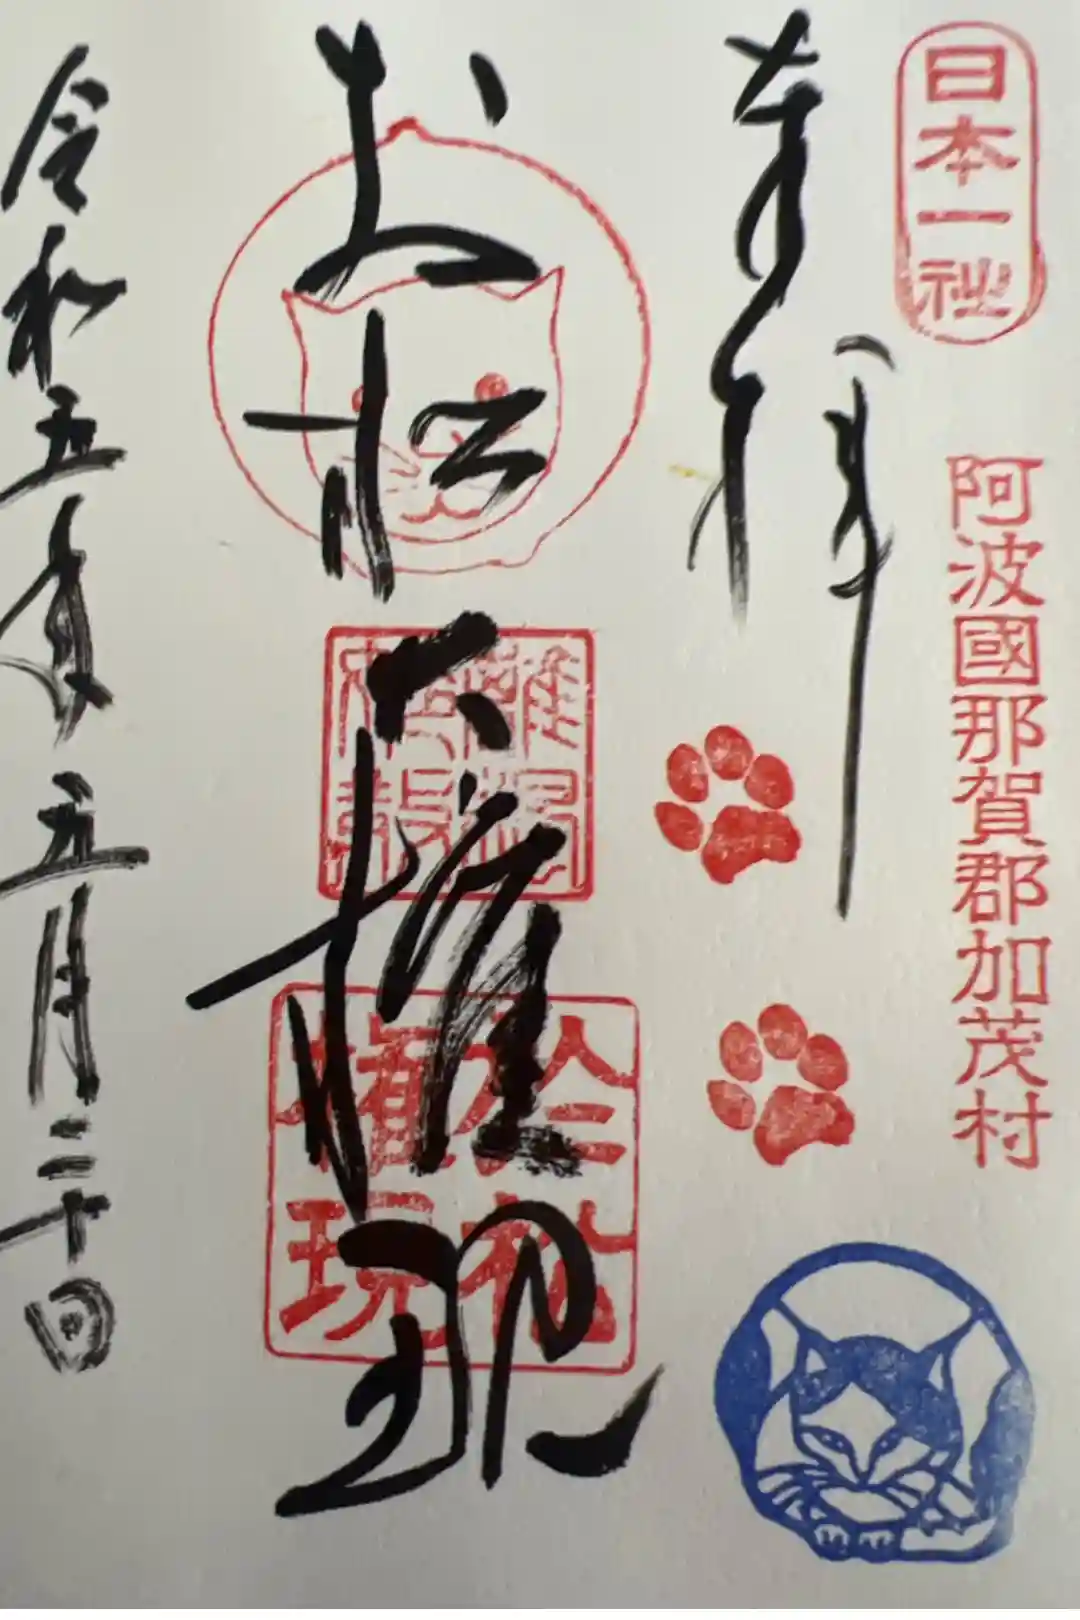 日本一社
阿波國那賀郡加茂村
奉拝
お松大権現
於松
権現
令和五年五月二十日